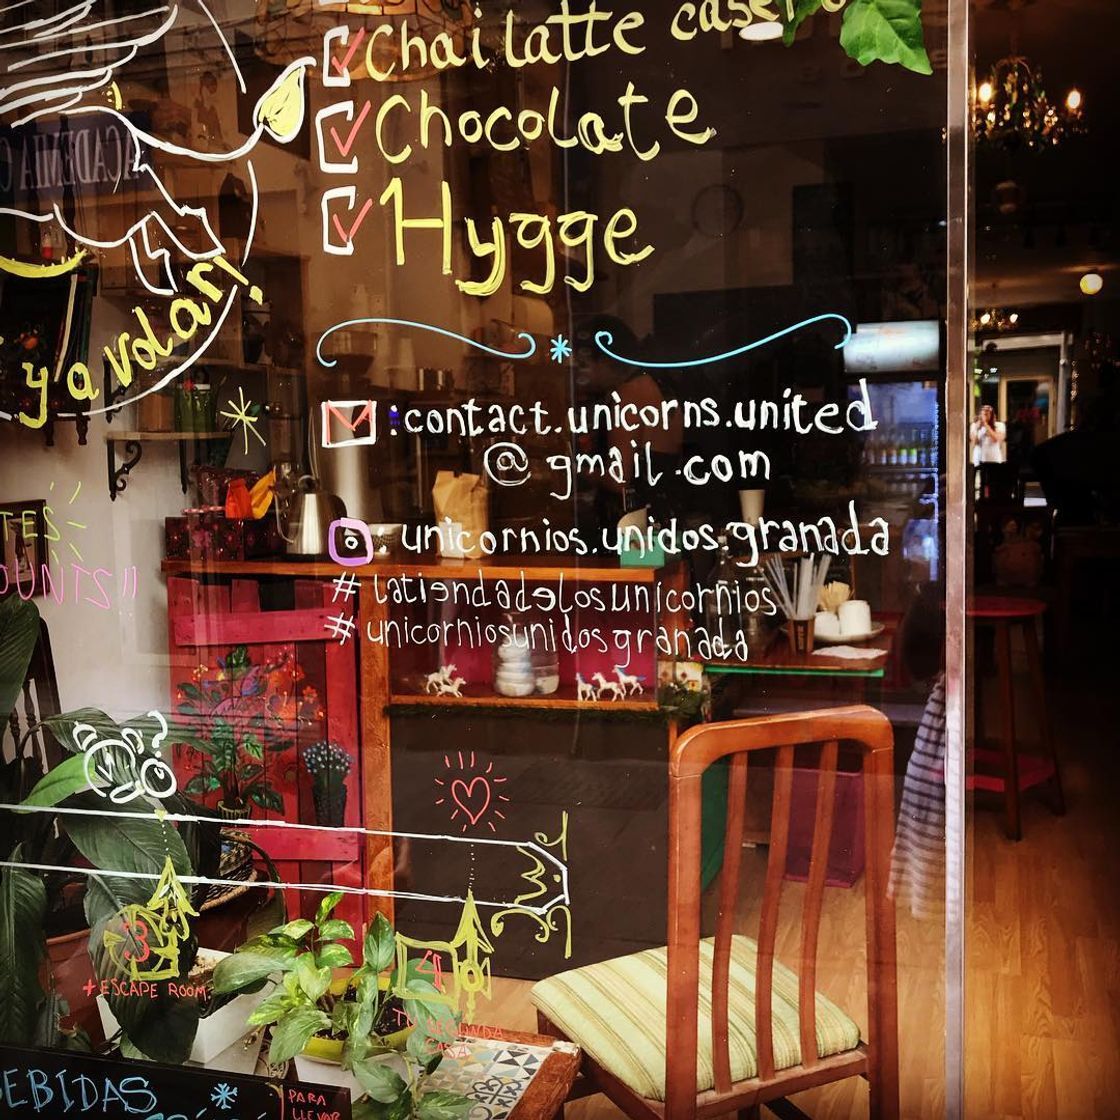 Chai latte casero
Chocolate
Hygge
y a volar!
: contact.unicorns.united
@gmail.com
: unicornios.unidos.granada
# latiendadelosunicornios
# unicorniosunidosgranada
3
+ ESCAPE ROOM
4
TU SEGUNDA
CASA
BEBIDAS
PARA
LLEVAR